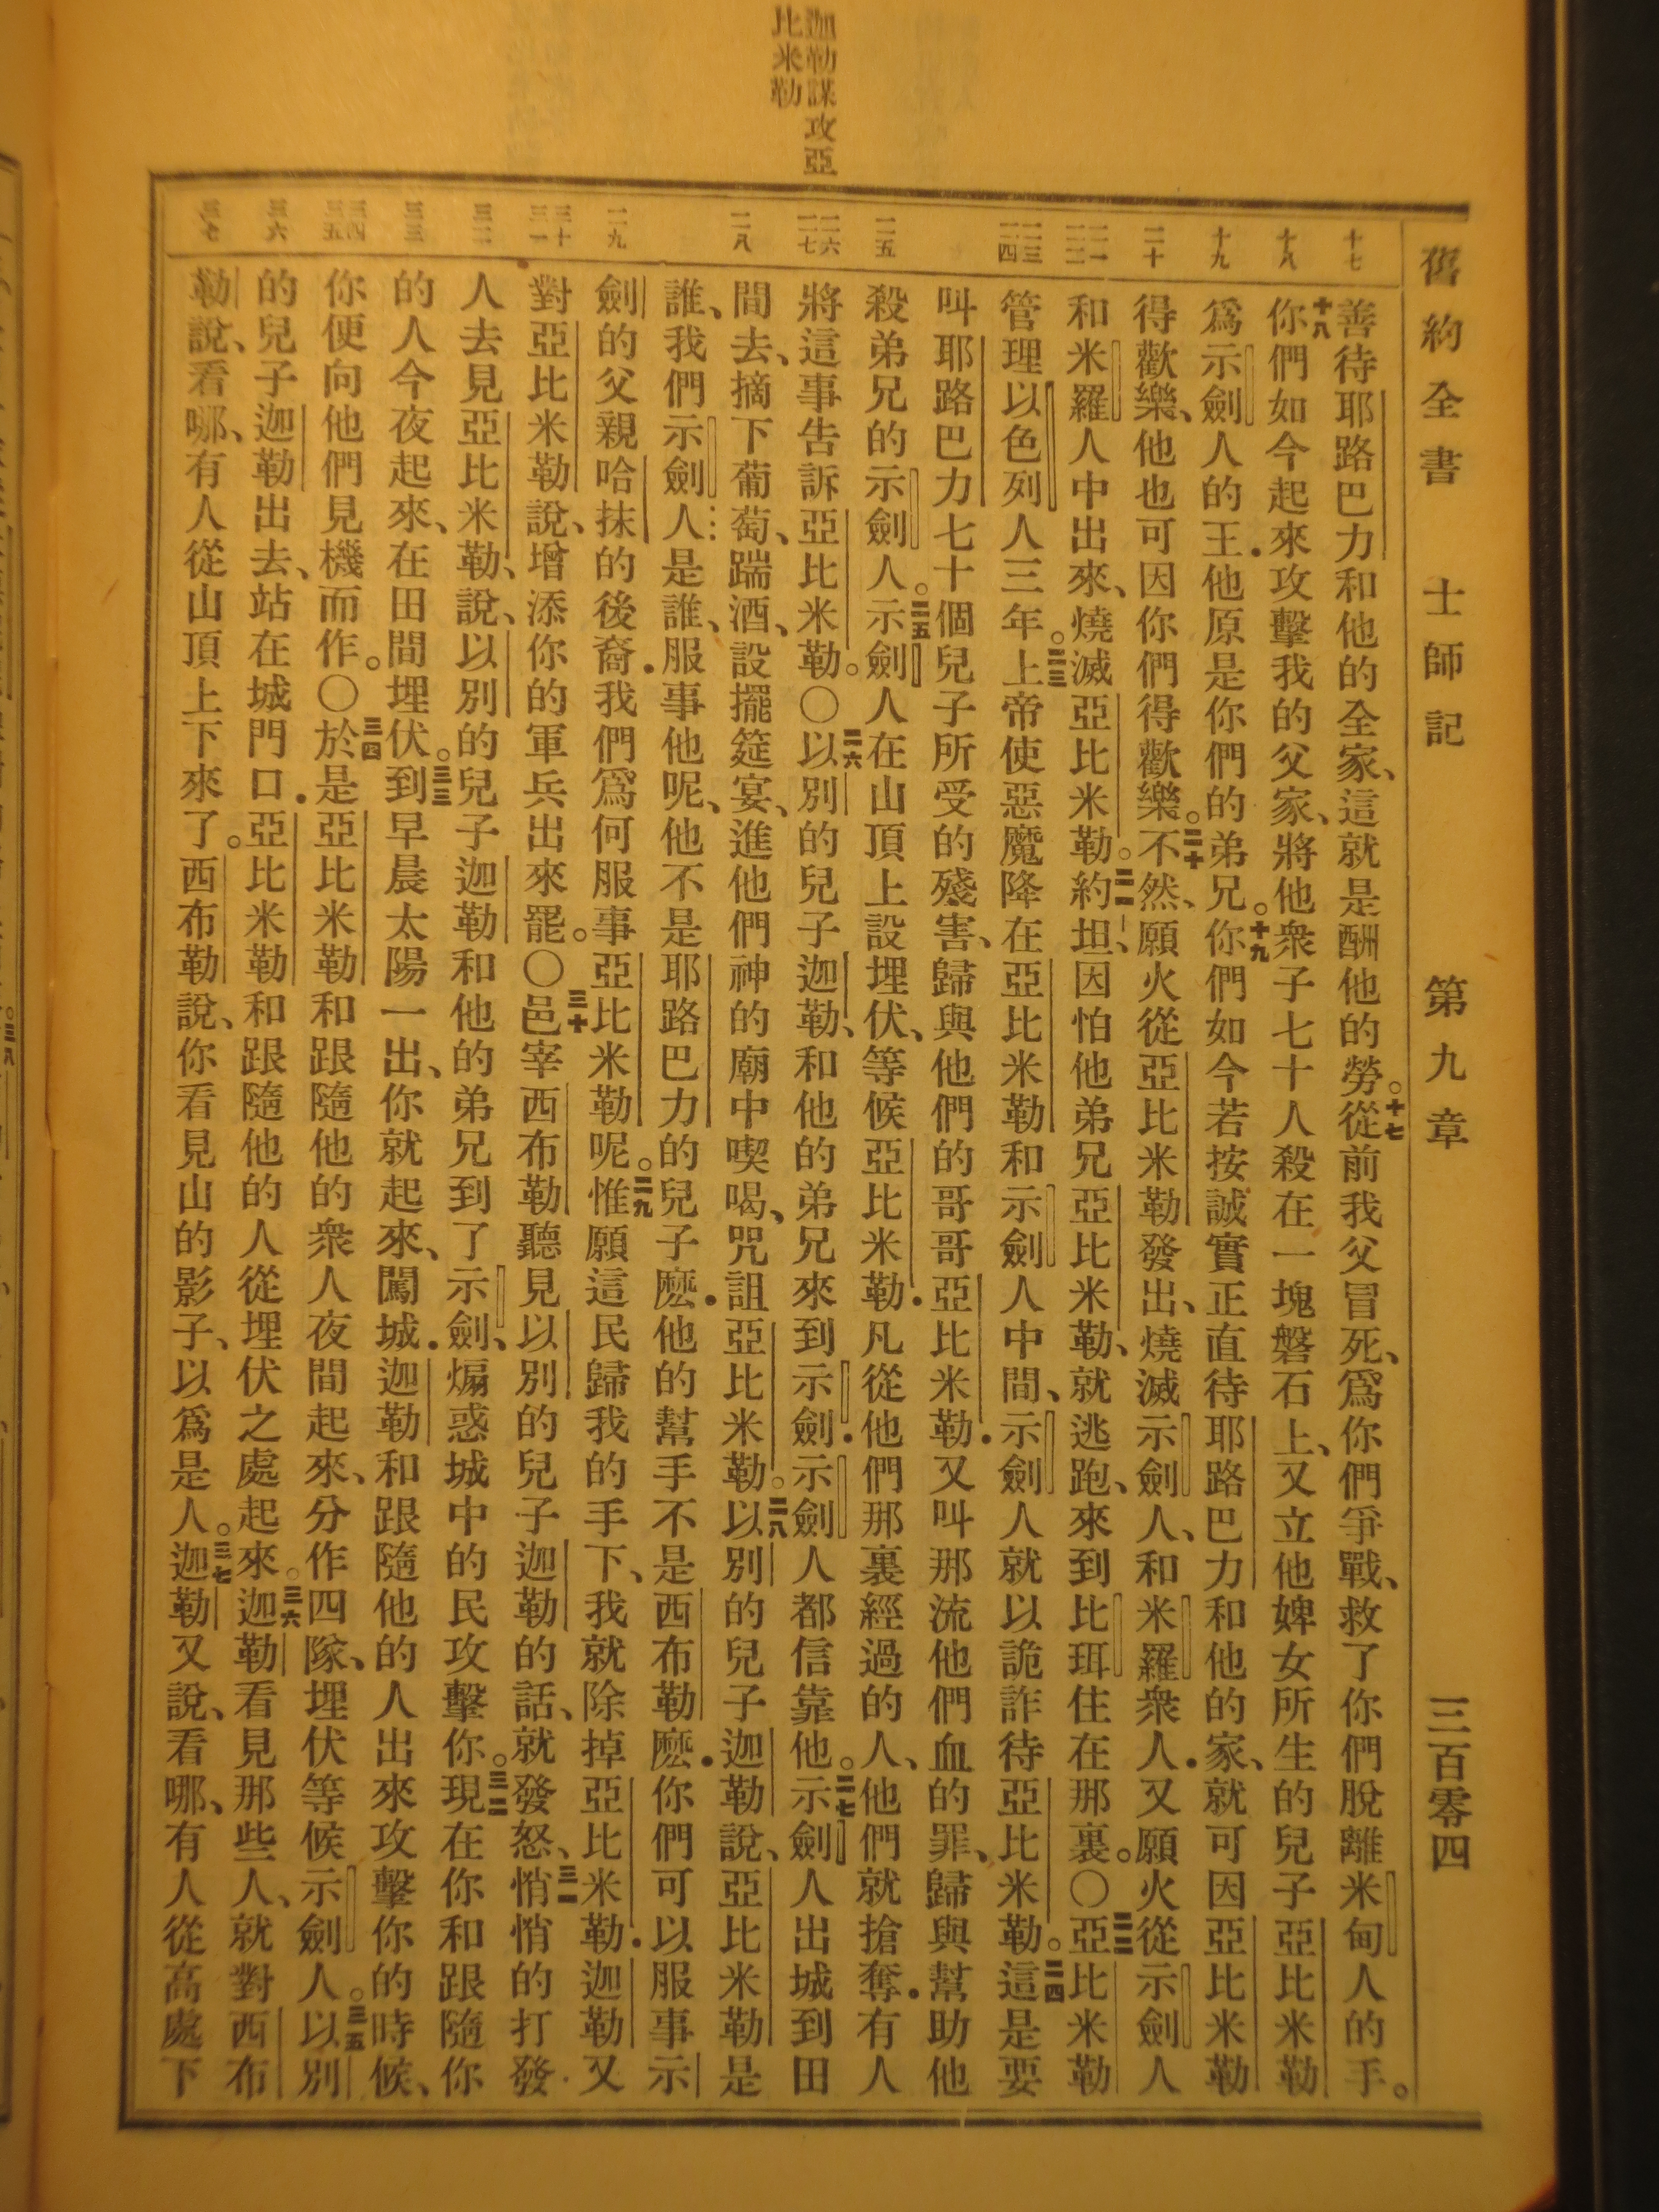 迦勒謀攻亞
比米勒
舊約全書　士師記　第九章　三百零四
十七
十八
十九
二十
二一
二二
二三
二四
二五
二六
二七
二八
二九
三十
三一
三二
三三
三四
三五
三六
三七
善待耶路巴力和他的全家、這就是酬他的勞。十七從前我父冒死、爲你們爭戰、救了你們脫離米甸人的手。
十八你們如今起來攻擊我的父家、將他衆子七十人殺在一塊磐石上、又立他婢女所生的兒子亞比米勒
爲示劍人的王．他原是你們的弟兄。十九你們如今若按誠實正直待耶路巴力和他的家、就可因亞比米勒
得歡樂、他也可因你們得歡樂。二十不然、願火從亞比米勒發出、燒滅示劍人、和米羅衆人．又願火從示劍人
和米羅人中出來、燒滅亞比米勒。二一約坦、因怕他弟兄亞比米勒、就逃跑、來到比珥住在那裏。〇二二亞比米勒
管理以色列人三年。二三上帝使惡魔降在亞比米勒和示劍人中間、示劍人就以詭詐待亞比米勒。二四這是要
叫耶路巴力七十個兒子所受的殘害、歸與他們的哥哥亞比米勒．又叫那流他們血的罪、歸與幫助他
殺弟兄的示劍人。二五示劍人在山頂上設埋伏、等候亞比米勒．凡從他們那裏經過的人、他們就搶奪．有人
將這事告訴亞比米勒。〇二六以別的兒子迦勒、和他的弟兄來到示劍．示劍人都信靠他。二七示劍人出城到田
間去、摘下葡萄、踹酒、設擺筵宴、進他們神的廟中喫喝、咒詛亞比米勒。二八以別的兒子迦勒說、亞比米勒是
誰、我們示劍人是誰、服事他呢、他不是耶路巴力的兒子麽．他的幫手不是西布勒麽．你們可以服事示
劍的父親哈抹的後裔．我們爲何服事亞比米勒呢。二九惟願這民歸我的手下、我就除掉亞比米勒．迦勒又
對亞比米勒說、增添你的軍兵出來罷。〇三十邑宰西布勒聽見以別的兒子迦勒的話、就發怒、三一悄悄的打發
人去見亞比米勒、說、以別的兒子迦勒和他的弟兄到了示劍、煽惑城中的民攻擊你。三二現在你和跟隨你
的人今夜起來、在田間埋伏。三三到早晨太陽一出、你就起來、闖城．迦勒和跟隨他的人出來攻擊你的時候、
你便向他們見機而作。〇三四於是亞比米勒和跟隨他的衆人夜間起來、分作四隊、埋伏等候示劍人。三五以別
的兒子迦勒出去、站在城門口．亞比米勒和跟隨他的人從埋伏之處起來。三六迦勒看見那些人、就對西布
勒說、看哪、有人從山頂上下來了。西布勒說、你看見山的影子、以爲是人。三七迦勒又說、看哪、有人從高處下